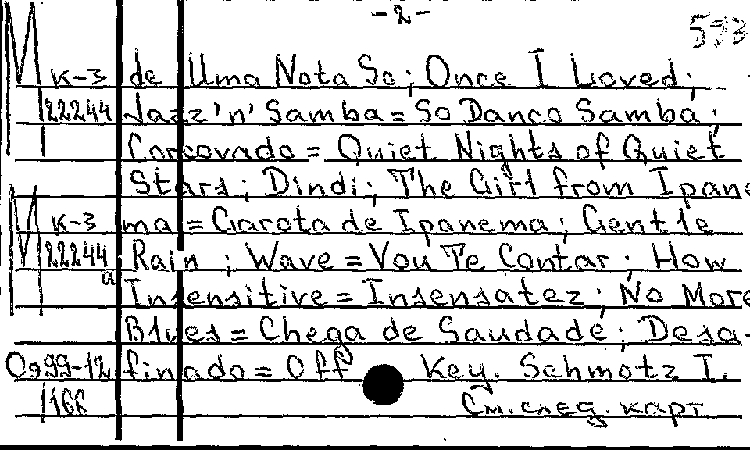 -2-
593
К-3 de Uma Nota So; Once I Loved;
22244 Jazz'n' Samba = So Danco Samba;
Corcovado = Quiet Nights of Quiet
Stars; Dindi; The Girl from Ipane
К-3 ma = Garota de Ipanema; Gentle
22244 Rain ; Wave = Vou Te Contar; How
a Insensitive = Insensatez; No More
Blues = Chega de Saudade; Desa-
О999-12 finado = Off Key. Schmotz I.
166 См. след. карт